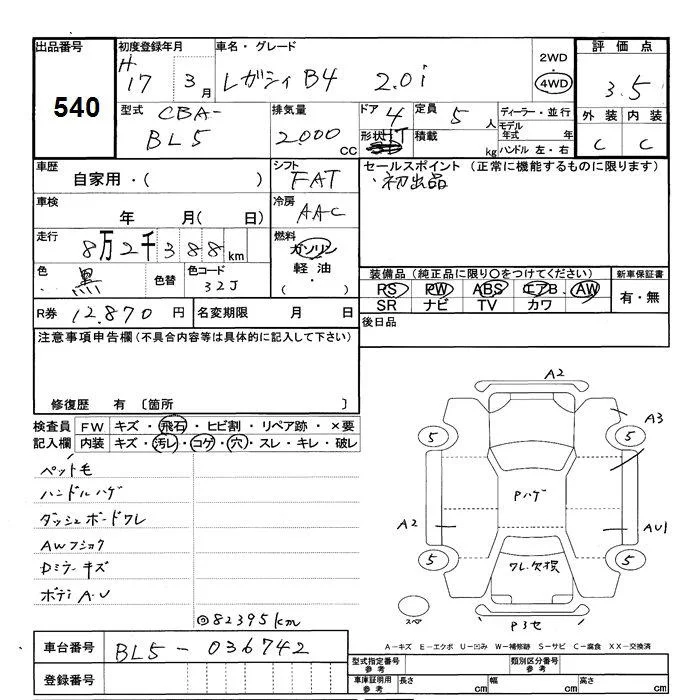 出品番号
540
初度登録年月
H 17 3月
車名・グレード
レガシィB4 2.0i
2WD
4WD
評価点
3.5
外装 内装
C C
型式 CBA-
BL5
排気量
2000 CC
ドア 4
定員 5 人
形状
積載 kg
ディーラー・並行
モデル年式 年
ハンドル 左・右
車歴
自家用・( )
シフト
FAT
セールスポイント (正常に機能するものに限ります)
・初出品
車検
年 月( 日)
冷房
AAC
走行
8万2千388km
燃料
ガソリン
軽油
( ・ )
色
黒
色替
色コード
32J
装備品(純正品に限り○をつけてください)
RS PW ABS エアB AW
SR ナビ TV カワ
新車保証書
有・無
R券 12,870 円
名変期限 月 日
後日品
注意事項申告欄(不具合内容等は具体的に記入して下さい)
修復歴 有 〔箇所 〕
検査員 FW キズ・飛石・ヒビ割・リペア跡・×要
記入欄 内装 キズ・汚レ・コゲ・穴・スレ・キレ・破レ
ペット毛
ハンドルハゲ
ダッシュボードワレ
AWフショク
Dミラーキズ
ボディA.U
◎82395km
A2
A3
5
5
Pハゲ
A2
AU1
5
5
ワレ.欠損
スペ
P3セ
A-キズ E-エクボ U-凹み W-補修跡 S-サビ C-腐食 XX-交換済
車台番号 BL5-036742
登録番号
型式指定番号 参考
類別区分番号 参考
車庫証明用 参考
長さ cm 幅 cm 高さ cm